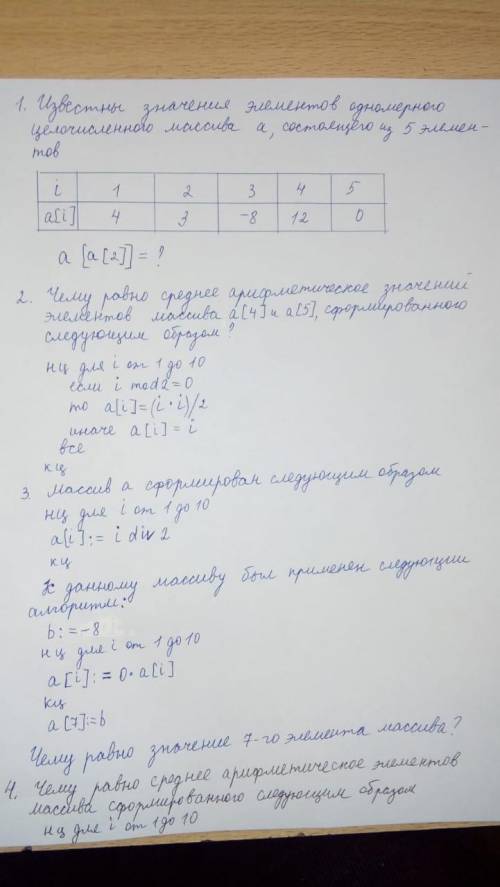 1. Известны значения элементов одномерного
целочисленного массива а, состоящего из 5 элемен-
тов
i 1 2 3 4 5
a[i] 4 3 -8 12 0
a [a[2]] = ?
2. Чему равно среднее арифметическое значений
элементов массива a[4] и a[5], сформированного
следующим образом?
нц для i от 1 до 10
если i mod 2 = 0
то a[i] = (i * i)/2
иначе a[i] = i
все
кц
3. Массив а сформирован следующим образом
нц для i от 1 до 10
a[i] := i div 2
кц
К данному массиву был применен следующий
алгоритм:
b: = -8
нц для i от 1 до 10
a[i]: = 0 * a[i]
кц
a[7]:=b
Чему равно значение 7-го элемента массива?
4. Чему равно среднее арифметическое элементов
массива сформированного следующим образом
нц для i от 1 до 10